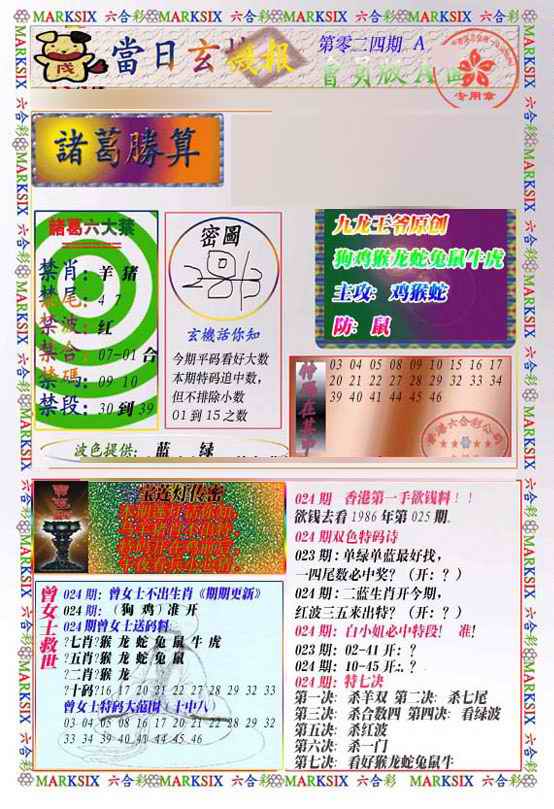 MARKSIX 六合彩 MARKSIX 六合彩 MARKSIX 六合彩 MARKSIX 六合彩 MARKSIX
當日玄機报
第零二四期 A
會員版A面
专用章
諸葛勝算
諸葛六大禁
禁肖：羊 猪
禁尾：4 7
禁波：红
禁合：07-01 合
禁碼：09 10
禁段：30 到 39
密圖
玄機話你知
今期平码看好大数
本期特码追中数，
但不排除小数
01 到 15 之数
九龙王爷原创
狗鸡猴龙蛇兔鼠牛虎
主攻：鸡猴蛇
防：鼠
03 04 05 08 09 10 15 16 17
20 21 22 27 28 29 32 33 34
39 40 41 44 45 46
香港六合彩公司
资料
波色提供： 蓝 绿
宝莲灯传密
曾女士救世
024 期：曾女士不出生肖《期期更新》
024 期：（狗 鸡）准 开
024 期曾女士送码料
?七肖?猴 龙 蛇 兔 鼠 牛 虎
?五肖?猴 龙 蛇 兔 鼠
?二肖?猴 龙
?十码?16 17 20 21 22 27 28 29 32 33
曾女士特码大范围（十中八）
03 04 05 08 16 17 20 21 22 28 29 32
33 34 39 40 41 44 45 46
024 期 香港第一手欲钱料！！
欲钱去看 1986 年第 025 期.
024 期双色特码诗
023 期：单绿单蓝最好找，
一四尾数必中奖？（开：？）
024 期：二蓝生肖开今期，
红波三五来出特？（开：？）
024 期：白小姐必中特段！ 准！
023 期：02-41 开：？
024 期：10-45 开：？
024 期：特七决
第一决：杀羊双 第二决：杀七尾
第三决：杀合数四 第四决：看绿波
第五决：杀红波
第六决：杀一门
第七决：看好猴龙蛇兔鼠牛
MARKSIX 六合彩 MARKSIX 六合彩 MARKSIX 六合彩 MARKSIX 六合彩 MARKSIX